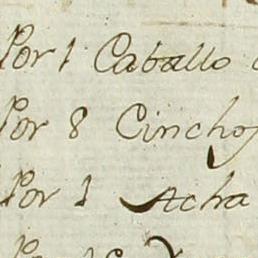 Por 1 Caballo
Por 8 Cinchos
Por 1 Acha